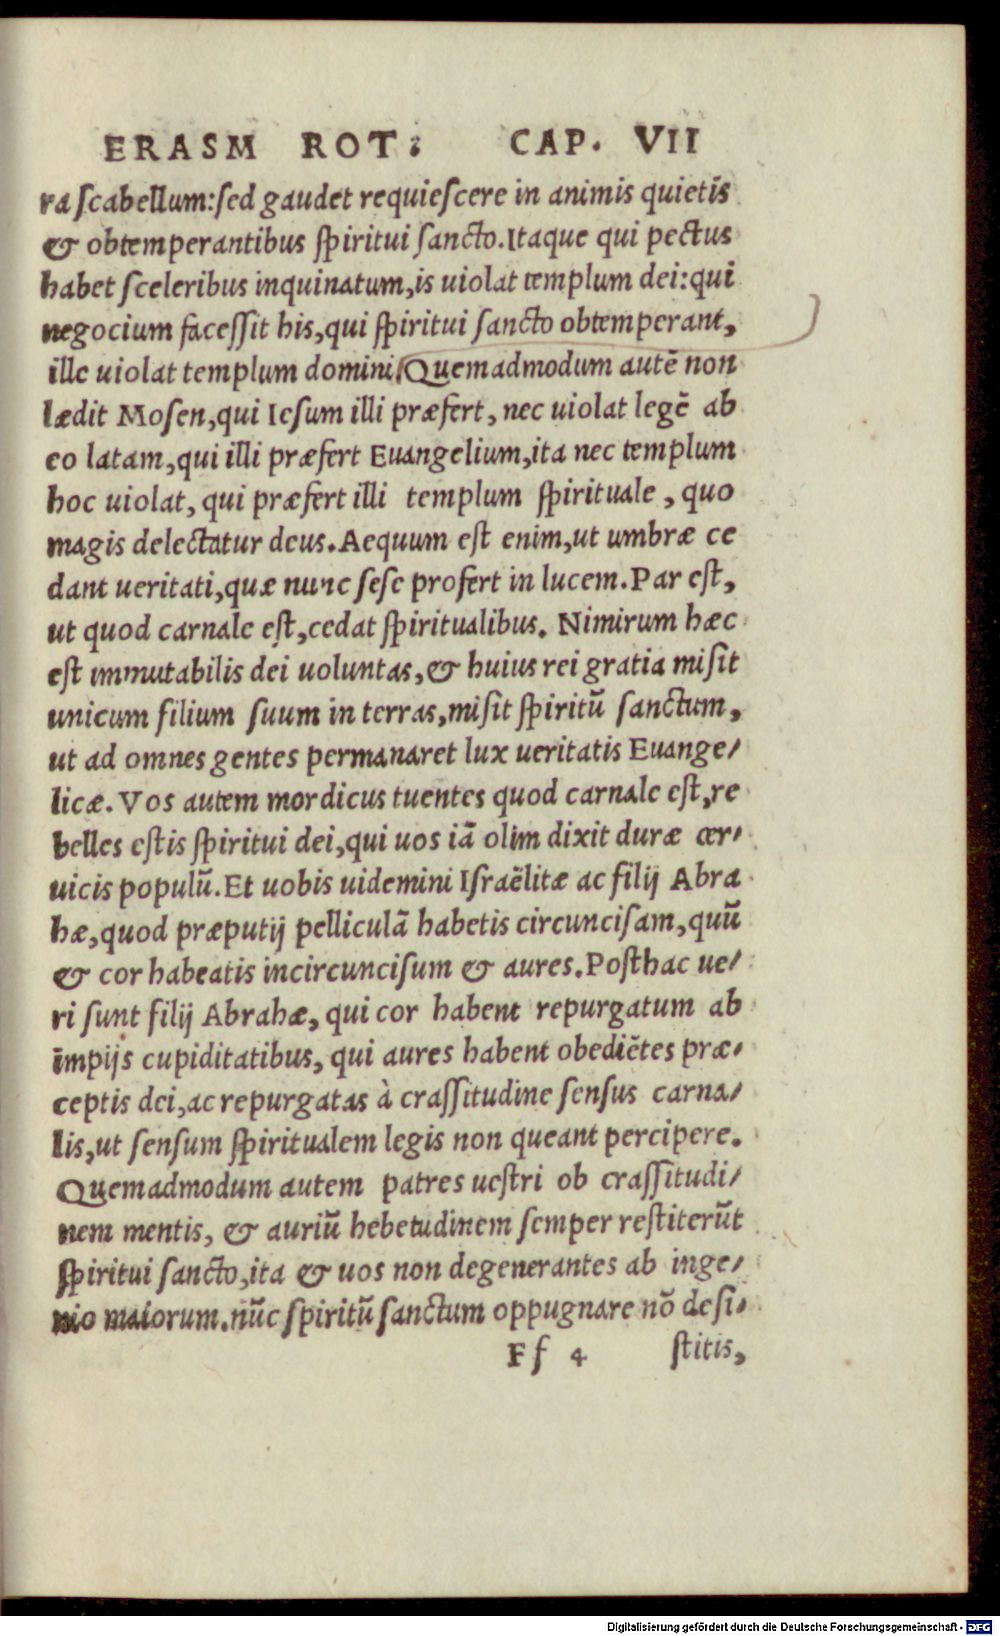 ERASM ROT: CAP. VII
ra scabellum:sed gaudet requiescere in animis quietis
& obtemperantibus spiritui sancto.Itaque qui pectus
habet sceleribus inquinatum,is uiolat templum dei:qui
negocium facessit his,qui spiritui sancto obtemperant,
ille uiolat templum domini.Quemadmodum autē non
lædit Mosen,qui Iesum illi præfert, nec uiolat legē ab
eo latam,qui illi præfert Euangelium,ita nec templum
hoc uiolat, qui præfert illi templum spirituale, quo
magis delectatur deus.Aequum est enim,ut umbræ ce
dant ueritati,quæ nunc sese profert in lucem.Par est,
ut quod carnale est,cedat spiritualibus. Nimirum hæc
est immutabilis dei uoluntas,& huius rei gratia misit
unicum filium suum in terras,misit spiritū sanctum,
ut ad omnes gentes permanaret lux ueritatis Euange/
licæ.Vos autem mordicus tuentes quod carnale est,re
belles estis spiritui dei,qui uos iā olim dixit duræ cer/
uicis populū.Et uobis uidemini Israëlitæ ac filij Abra
hæ,quod præputij pelliculā habetis circuncisam,quū
& cor habeatis incircuncisum & aures.Posthac ue/
ri sunt filij Abrahæ, qui cor habent repurgatum ab
impijs cupiditatibus, qui aures habent obediētes præ/
ceptis dei,ac repurgatas à crassitudine sensus carna/
lis,ut sensum spiritualem legis non queant percipere.
Quemadmodum autem patres uestri ob crassitudi/
nem mentis, & auriū hebetudinem semper restiterūt
spiritui sancto,ita & uos non degenerantes ab inge/
nio maiorum.nūc spiritū sanctum oppugnare nō desi/
Ff 4 stitis,
Digitalisierung gefördert durch die Deutsche Forschungsgemeinschaft - DFG